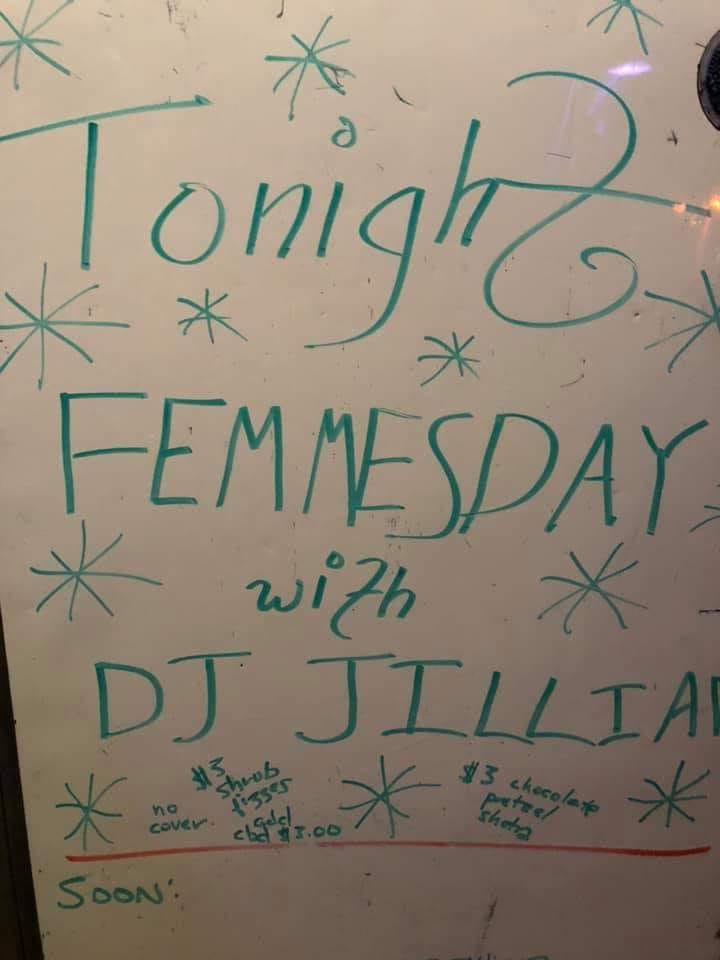 Tonight
FEMMESDAY
with
DJ JILLIA
$3
shrub
fizzes
add
cbd $3.00
no
cover.
$3 chocolate
pretzel
shots
SOON: